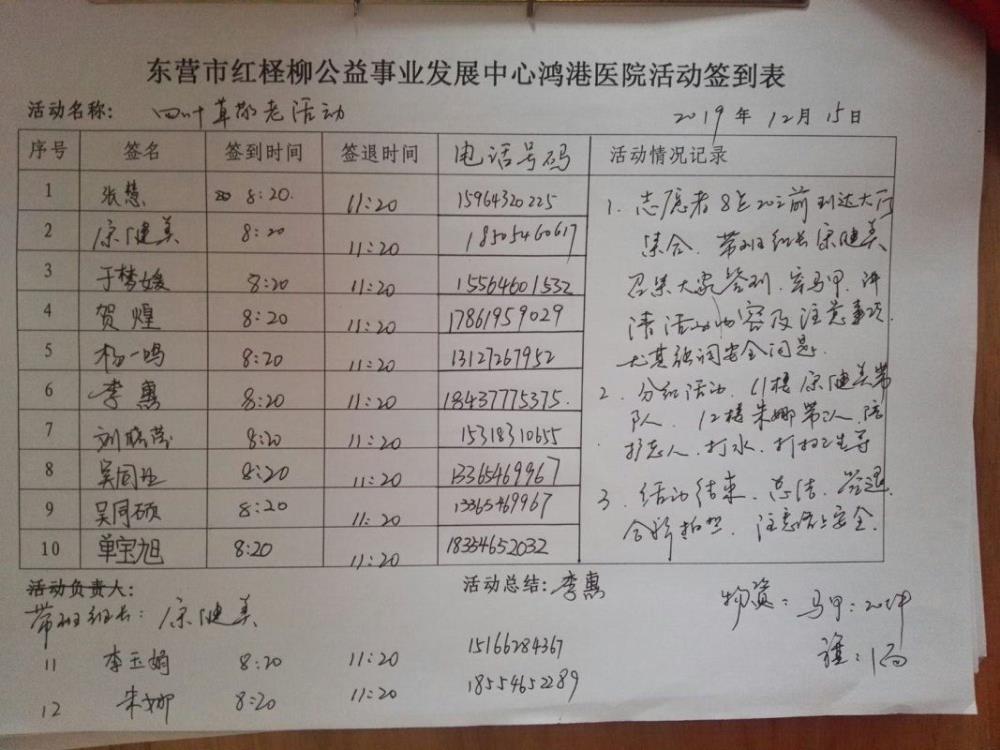 东营市红柽柳公益事业发展中心鸿港医院活动签到表
活动名称: 四叶草敬老活动 2019年12月15日
序号 签名 签到时间 签退时间 电话号码 活动情况记录
1 张慧 8:20 11:20 15964320225
2 宗健美 8:20 11:20 18505460617
3 于梦媛 8:20 11:20 15564601532
4 贺煌 8:20 11:20 17861959029
5 杨一鸣 8:20 11:20 13127267952
6 李惠 8:20 11:20 18437775375.
7 刘 8:20 11:20 15318310655
8 吴同 8:20 11:20 13365469967
9 吴同硕 8:20 11:20 13365469967
10 单宝旭 8:20 11:20 18354652032
1. 志愿者8点20之前到达大厅
集合. 带班组长宗健美
召集大家签到.穿马甲.讲
清活动内容及注意事项.
尤其强调安全问题.
2. 分组活动. 11楼宗健美带
队. 12楼朱娜带队.陪
护老人.打水.打扫卫生等
3. 活动结束.总结.签退.
合影拍照. 注意路上安全.
活动负责人: 活动总结: 李惠
带班组长: 宗健美
物资: 马甲:20件
旗:1面
11 李玉娟 8:20 11:20 15166284367
12 朱娜 8:20 11:20 18554652289